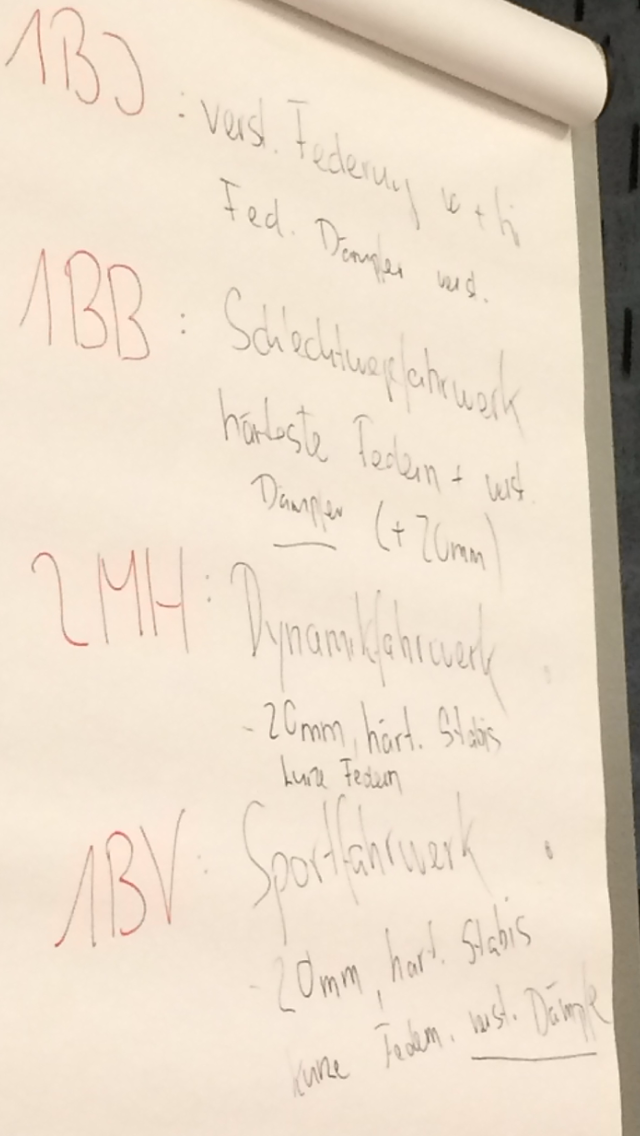 1BJ : verst. Federung v + hi
Fed. Dämpfer verst.
1BB : Schlechtwegfahrwerk
härteste Federn + verst.
Dämpfer (+ 20mm)
2MH : Dynamikfahrwerk
- 20mm, härt. Stabis
kurze Federn
1BV : Sportfahrwerk
- 20mm, härt. Stabis
kurze Federn. verst. Dämpfer